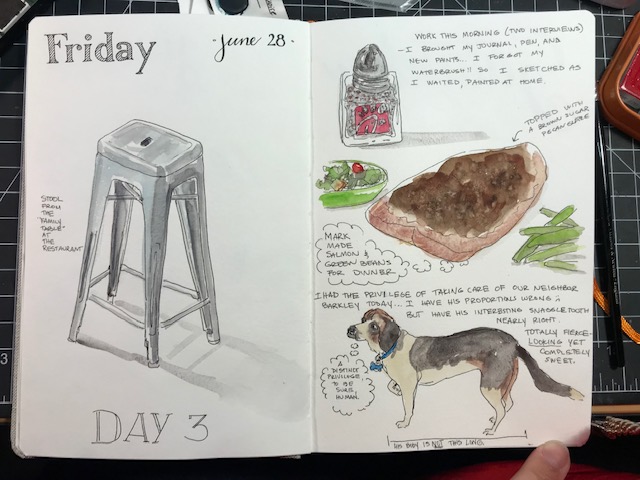 Friday
·June 28·
STOOL
FROM
THE
"FAMILY
TABLE"
AT
THE
RESTAURANT
DAY 3
WORK THIS MORNING (TWO INTERVIEWS)
- I BROUGHT MY JOURNAL, PEN, AND
NEW PAINTS... I FORGOT MY
WATERBRUSH!! SO I SKETCHED AS
I WAITED, PAINTED AT HOME.
TOPPED WITH
A BROWN SUGAR
PECAN GLAZE
MARK
MADE
SALMON &
GREEN BEANS
FOR DINNER
I HAD THE PRIVILEGE OF TAKING CARE OF OUR NEIGHBOR
BARKLEY TODAY... I HAVE HIS PROPORTIONS WRONG
BUT HAVE HIS INTERESTING SNAGGLETOOTH
NEARLY RIGHT.
TOTALLY FIERCE-
LOOKING YET
COMPLETELY
SWEET.
A DISTINCT
PRIVILEGE
TO BE
SURE,
HUMAN.
HIS BODY IS NOT THIS LONG